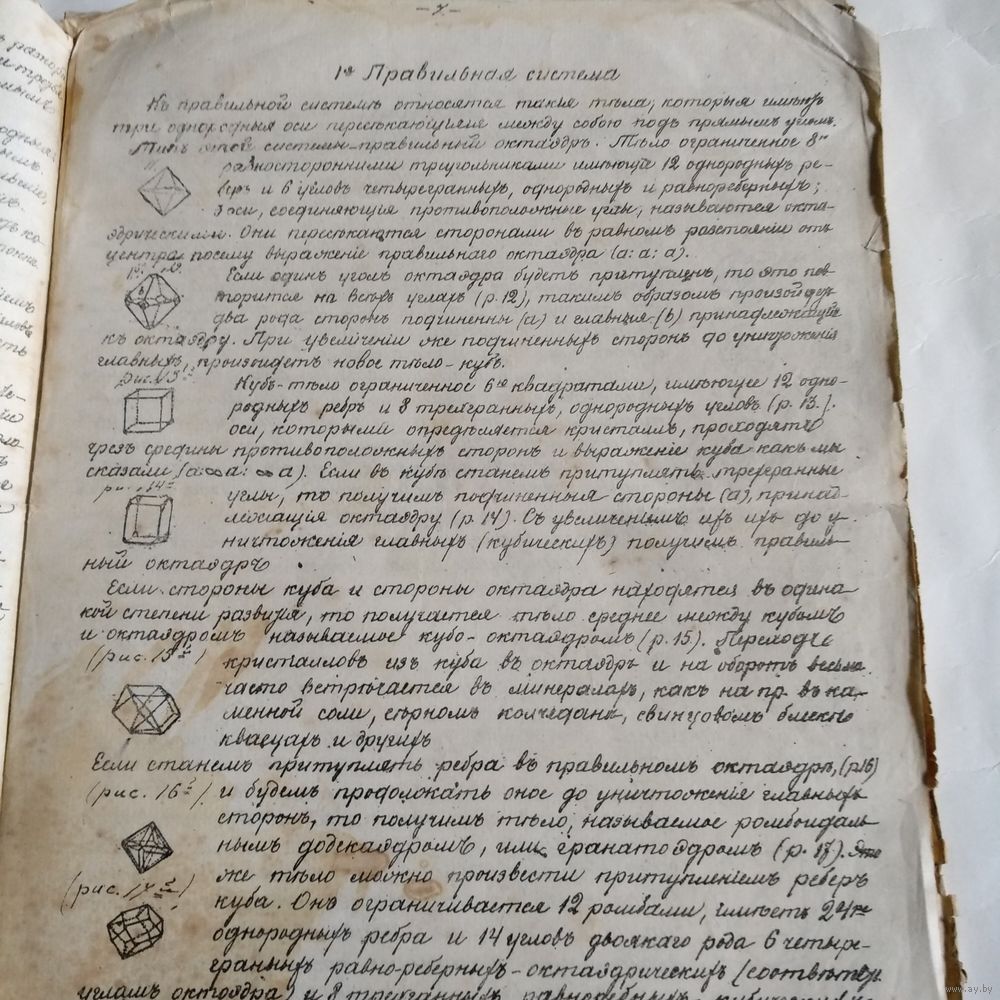 - 7 -
1я Правильная система
Къ правильной системѣ относятся такія тѣла, которыя имѣютъ
три однородныя оси пересѣкающіяся между собою подъ прямымъ угломъ.
Типъ этой системы-правильный октаэдръ. Тѣло ограниченное 8ю
равносторонними триугольниками имѣющее 12 однородныхъ ре-
беръ и 6 угловъ четырегранныхъ, однородныхъ и равнореберныхъ;
3 оси, соединяющія противоположные углы, называются окта-
эдрическими. Они пересѣкаются сторонами въ равномъ разстояніи отъ
центра, посему выраженіе правильнаго октаэдра (a: a: a).
Если одинъ уголъ октаэдра будетъ притупленъ, то это пов-
торится на всѣхъ углахъ (р. 12), такимъ образомъ произойдутъ
два рода сторонъ подчиненны (a) и главныя (b) принадлежащія
къ октаэдру. При увеличеніи же подчиненныхъ сторонъ до уничтоженія
главныхъ, произойдетъ новое тѣло-кубъ.
рис. 13
Кубъ-тѣло ограниченное 6ью квадратами, имѣющее 12 одно-
родныхъ ребръ и 8 трехгранныхъ, однородныхъ угловъ (р. 13.).
оси, которыми опредѣляется кристаллъ, проходятъ
чрезъ средины противоположныхъ сторонъ и выраженіе куба какъ мы
сказали (a: ∞ a: ∞ a). Если въ кубѣ станемъ притуплять трехгранные
рис. 14
углы, то получимъ подчиненныя стороны (a), принад-
лежащія октаэдру (р. 14). Съ увеличеніемъ ихъ до у-
ничтоженія главныхъ (кубическихъ) получимъ правиль-
ный октаэдръ
Если стороны куба и стороны октаэдра находятся въ одина-
кой степени развитія, то получается тѣло среднее между кубомъ
и октаэдромъ называемое кубо-октаэдромъ (р. 15). Переходъ
(рис. 15)
кристалловъ изъ куба въ октаэдръ и на оборотъ весьма
часто встрѣчается въ минералахъ, какъ на пр. въ ка-
менной соли, сѣрномъ колчеданѣ, свинцовомъ блескѣ
квасцахъ и другихъ
Если станемъ притуплять ребра въ правильномъ октаэдрѣ, (р.16)
(рис. 16)
и будемъ продолжать оное до уничтоженія главныхъ
сторонъ, то получимъ тѣло, называемое ромбоидаль-
нымъ додекаэдромъ, или гранатоэдромъ (р. 17). Это
(рис. 17)
же тѣло можно произвести притупленіемъ реберъ
куба. Онъ ограничивается 12 ромбами, имѣетъ 24ре
однородныхъ ребра и 14 угловъ двоякаго рода 6 четыре-
гранныхъ равно-реберныхъ-октаэдрическихъ (соотвѣтству
угламъ октаэдра и 8 трехгранныхъ равнореберныхъ
www.ay.by